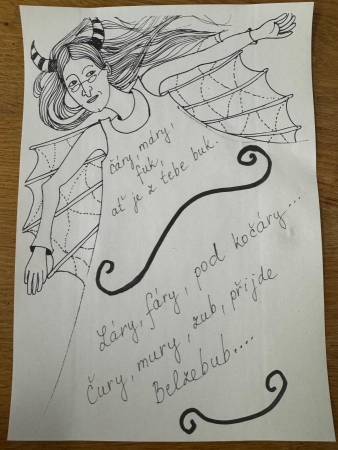 čáry, máry,
fuk,
ať je z tebe buk.
Láry, fáry, pod kočáry...
Čury, mury, zub, přijde
Belzebub....